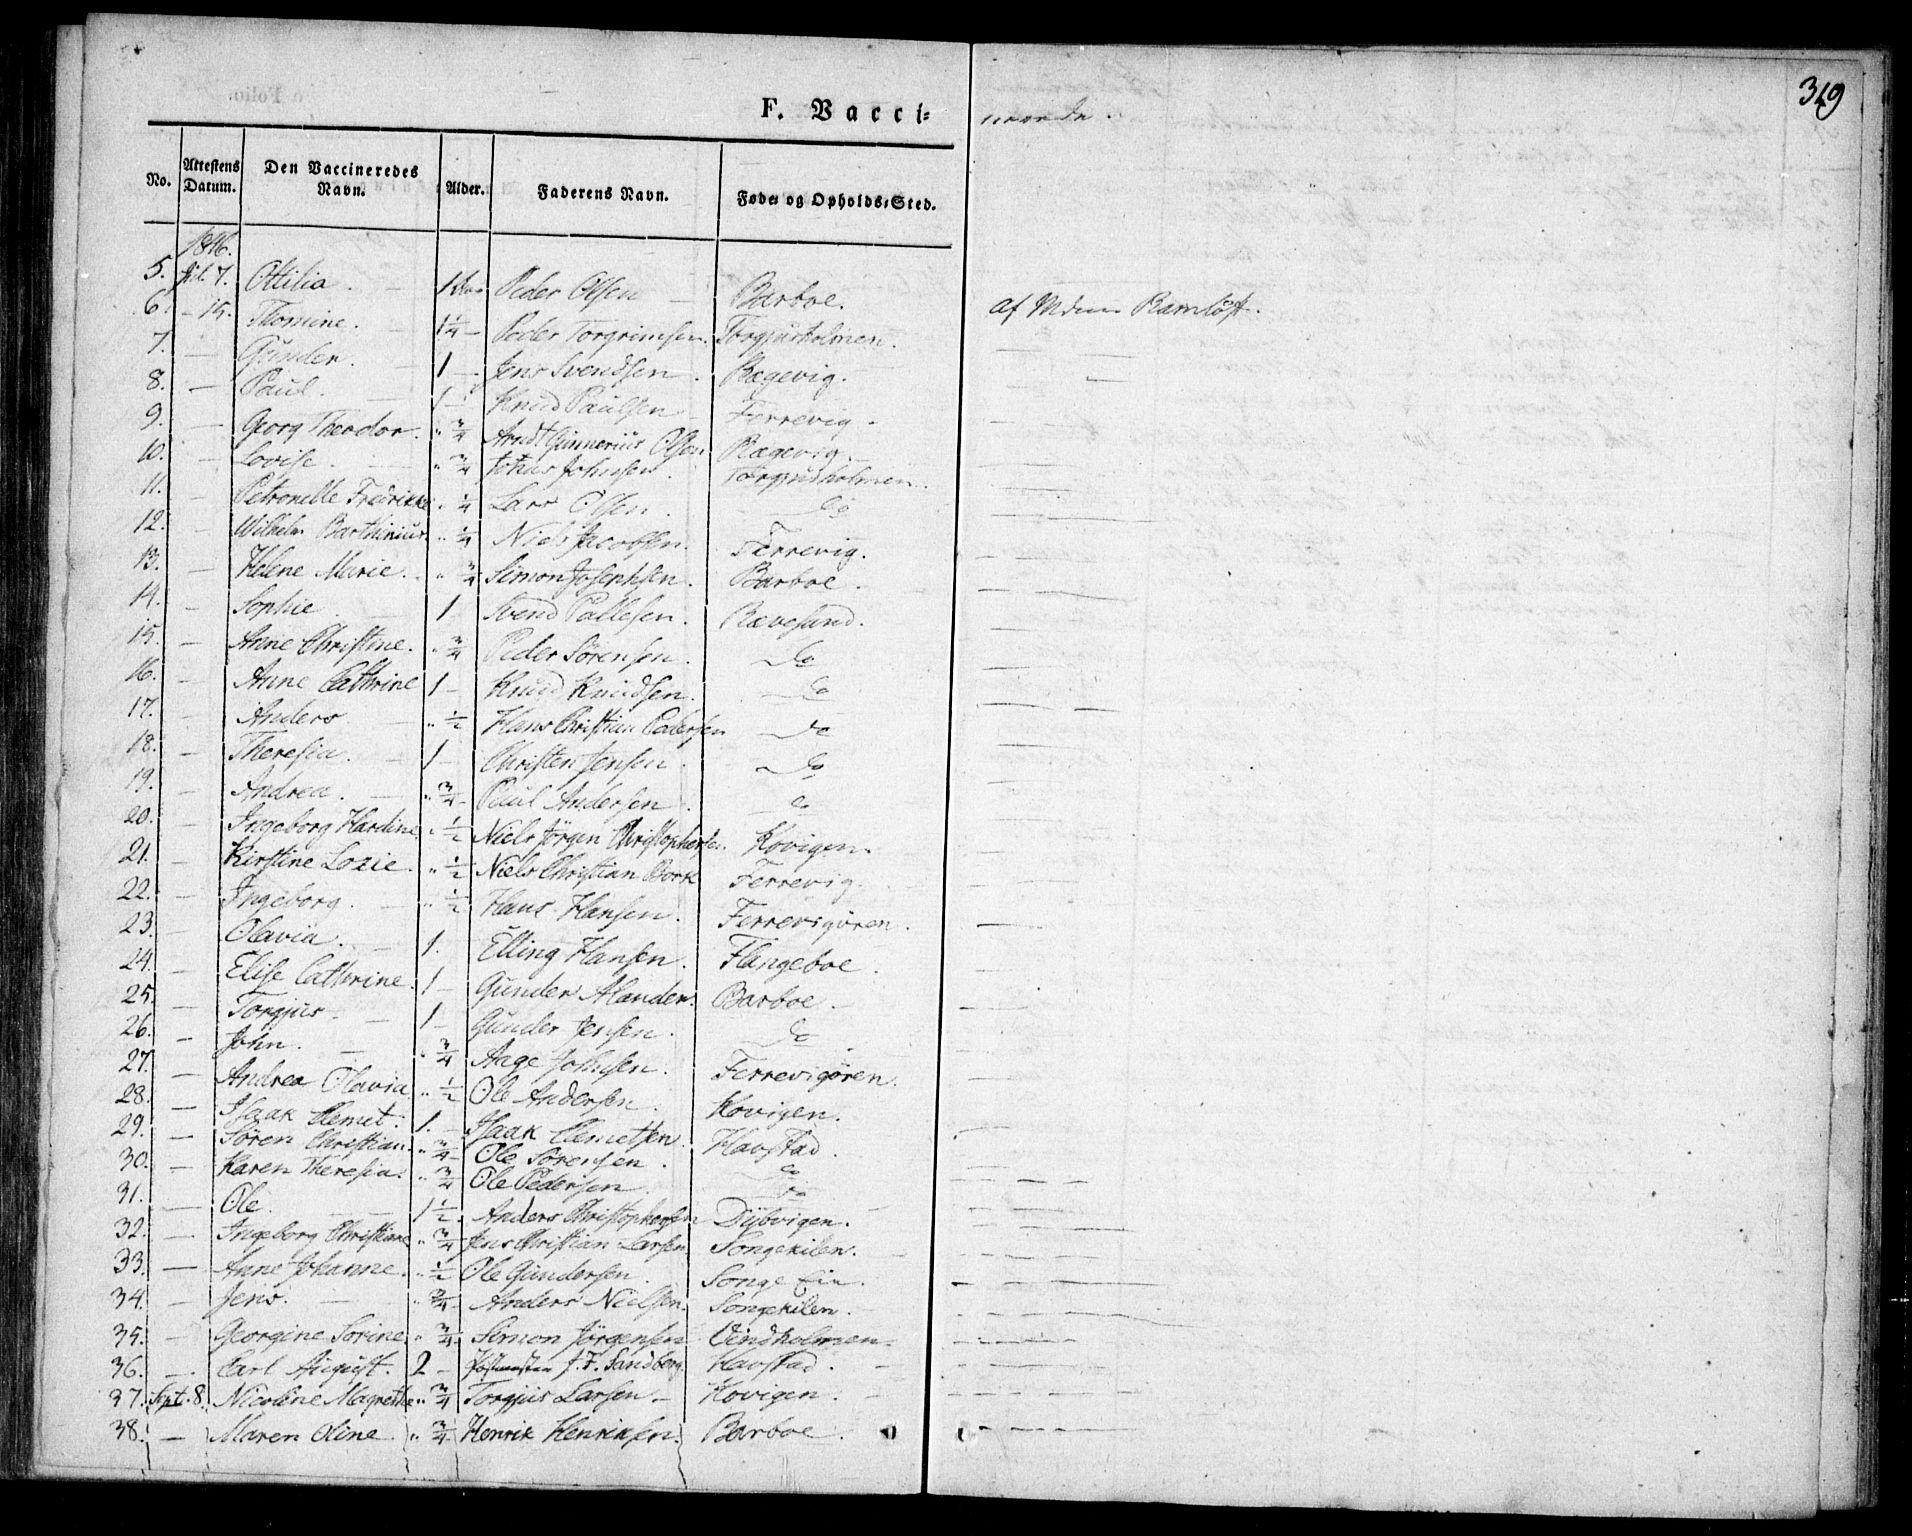 349
F. Vacci=
neerede.
No. Attestens Datum. Den Vaccineredes Navn. Alder. Faderens Navn. Føde= og Opholds=Sted.
1846.
5. Jul. 7. Ottilia. 1 Peder Olsen Barboe.
6. - 15. Thomine. 1 1/4 Peder Torgrimsen. Torgjusholmen. af Mdm Ramlöst.
7. — Gunder. 1 — Jens Svendsen. Rægevig.
8. — Paul. 1 — Knud Paulsen Ferrevig.
9. — Georg Theodor. " 3/4 Arndt Gunnerius Olsen Rægevig.
10. — Lovise. " 3/4 Johnsen. Torgjusholmen.
11. — Petronelle Fredrikke " 1/4 Lars Olsen. do
12. — Wilhelm Barthinius. " 1/4 Niels Jacobsen. Ferrevig.
13. — Helene Marie. " 3/4 Simon Josephsen. Barboe.
14. — Sophie 1 Svend Pallesen. Rævesand.
15. — Anne Christine. " 3/4 Peder Sörensen. do
16. — Anne Cathrine 1 — Knud Knudsen. do
17. — Anders " 1/2 Hans Christian Pedersen do
18. — Theresia. 1 — Christen Jensen. do
19. — Andrea. " 3/4 Paul Andersen. do
20. — Ingeborg Hardine " 1/2 Niels Jörgen Christophersen. Kovigen.
21. — Kirstine Lovie. " 1/2 Niels Christian Bork Ferrevig.
22. — Ingeborg. " 1/2 Hans Hansen. Ferrevigören.
23. — Olavia. 1. Elling Hansen. Flangeboe.
24. — Elise Cathrine. 1 — Gunder Alander. Barboe.
25. — Torgjus. 1 — Gunder Jensen. do
26. — John. " 3/4 Aage Johnsen. Ferrevigören.
27. — Andrea Olavia " 1/2 Ole Andersen. Kovigen.
28. — Isaak Clemet. 1. — Isaak Clemetsen. Havstad.
29. — Sören Christian. " 3/4 Ole Sörensen. do
30. — Karen Theresia. " 3/4 Ole Pedersen. do
31. — Ole. 1 1/2 Anders Christophersen Dybvigen.
32. — Ingeborg Christiane " 3/4 Jens Christian Larsen Songekilen.
33. — Anne Johanne. " 1/2 Ole Gundersen. Songe Eie.
34. — Jens. " 3/4 Anders Nielsen. Songekilen.
35. — Georgine Sorine " 3/4 Simon Jörgensen Vindholmen.
36. — Carl August. 2 — J. F. Sandberg. Havstad.
37. Sept. 8. Nicoline Magrethe " 3/4 Torgjus Larsen — Kovigen.
38. — Maren Oline. " 3/4 Henrik Henriksen. Barboe.